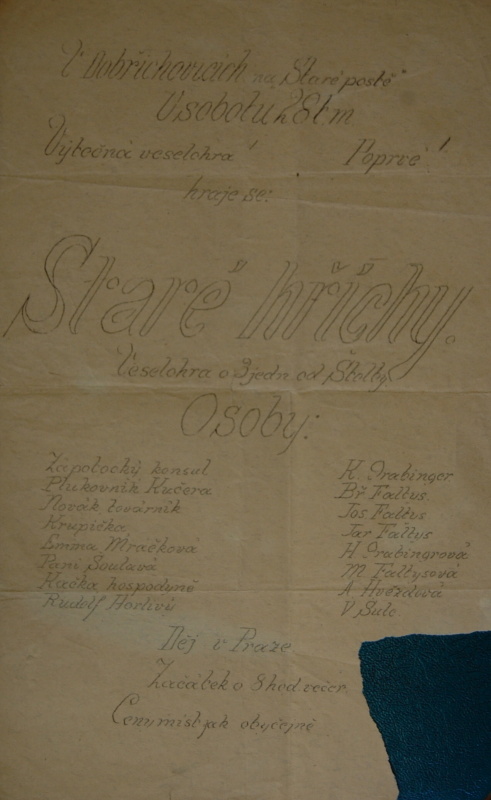 V Dobřichovicích na „Staré poště“
V sobotu 28 t.m.
Výtečná veselohra! Poprvé!
hraje se:
Staré hříchy.
Veselohra o 3 jedn od Štolby
Osoby:
Zápotocký konsul K. Grabinger
Plukovník Kučera Bř Faltus.
Novák továrník Jos Faltus
Krupička Jar Faltys
Emma Mráčková H Grabingrová
Paní Soulavá M. Faltysová
Kačka hospodyně A. Hvězdová
Rudolf Horlivý V Šulc.
Děj v Praze
Začátek o 8 hod večer.
Ceny míst jak obyčejně